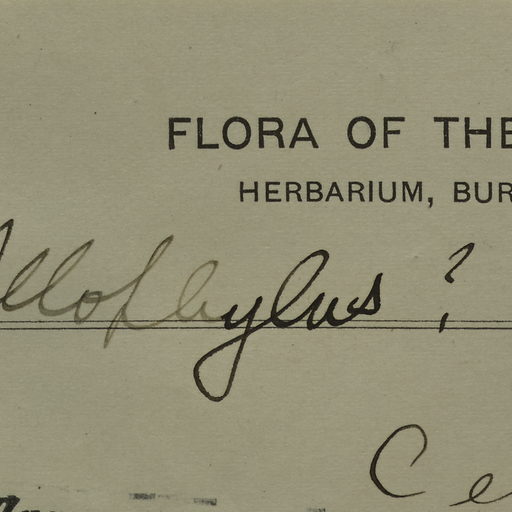 FLORA OF THE
HERBARIUM, BUR
Allophylus ?
Ce